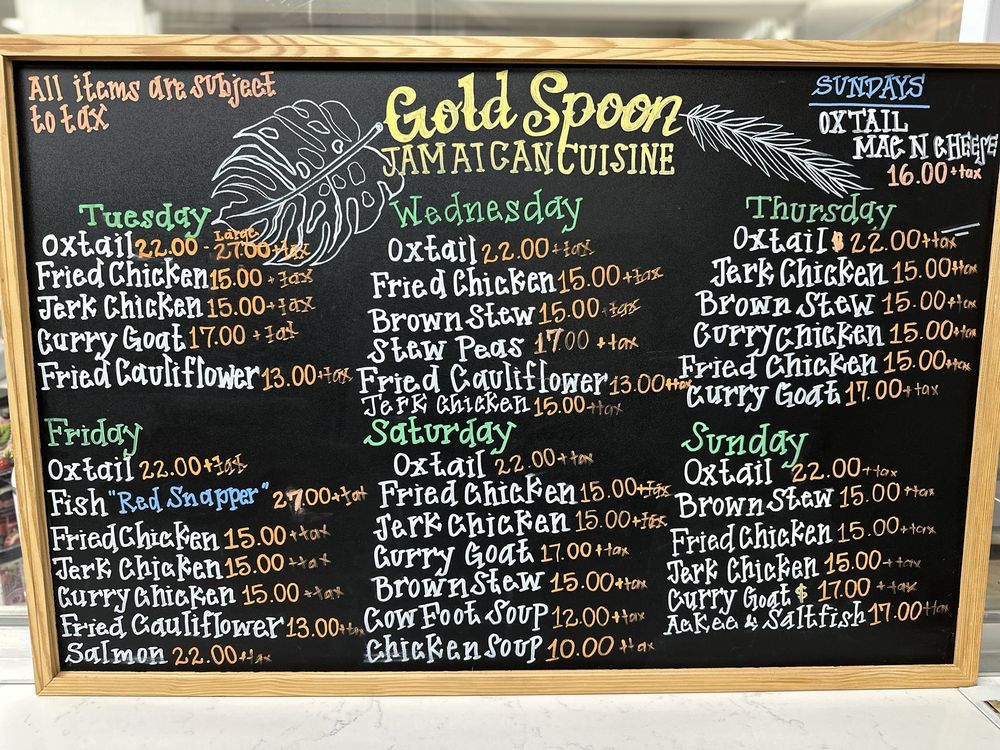 All items are subject
to tax
Gold Spoon
JAMAICAN CUISINE
SUNDAYS
OXTAIL
MAC N CHEESE
16.00+tax
Tuesday
Large
Oxtail 22.00 - 27.00+tax
Fried Chicken 15.00 +tax
Jerk Chicken 15.00+tax
Curry Goat 17.00 +tax
Fried Cauliflower 13.00+tax
Wednesday
Oxtail 22.00+tax
Fried Chicken 15.00+tax
Brown Stew 15.00+tax
Stew Peas 17.00 +tax
Fried Cauliflower 13.00+tax
Jerk Chicken 15.00+tax
Thursday
Oxtail $ 22.00+tax
Jerk Chicken 15.00+tax
Brown Stew 15.00+tax
Curry Chicken 15.00+tax
Fried Chicken 15.00+tax
Curry Goat 17.00+tax
Friday
Oxtail 22.00+tax
Fish "Red Snapper" 27.00+tax
Fried Chicken 15.00+tax
Jerk Chicken 15.00+tax
Curry Chicken 15.00+tax
Fried Cauliflower 13.00+tax
Salmon 22.00+tax
Saturday
Oxtail 22.00+tax
Fried Chicken 15.00+tax
Jerk Chicken 15.00+tax
Curry Goat 17.00+tax
Brown Stew 15.00+tax
Cow Foot Soup 12.00+tax
Chicken Soup 10.00 +tax
Sunday
Oxtail 22.00+tax
Brown Stew 15.00+tax
Fried Chicken 15.00+tax
Jerk Chicken 15.00+tax
Curry Goat $ 17.00 +tax
Ackee & Saltfish 17.00+tax